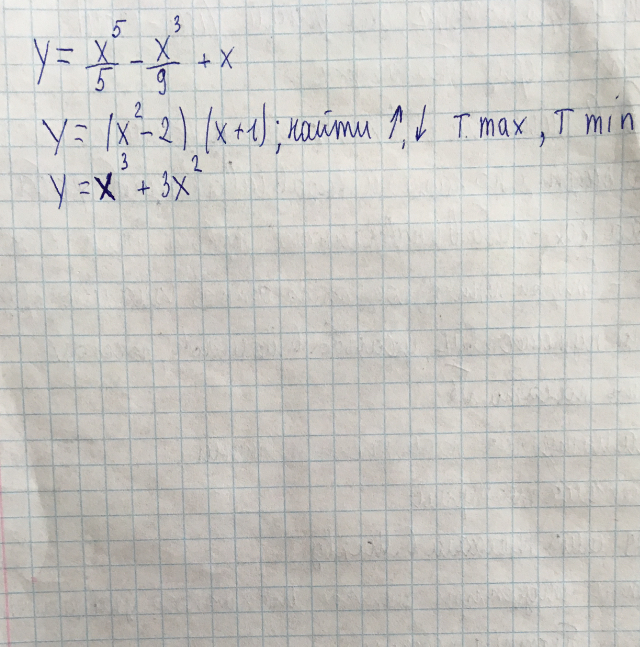 y = x⁵/5 - x³/9 + x
y = (x² - 2) (x + 1) ; найти ↑, ↓ т. max, т min
y = x³ + 3x²